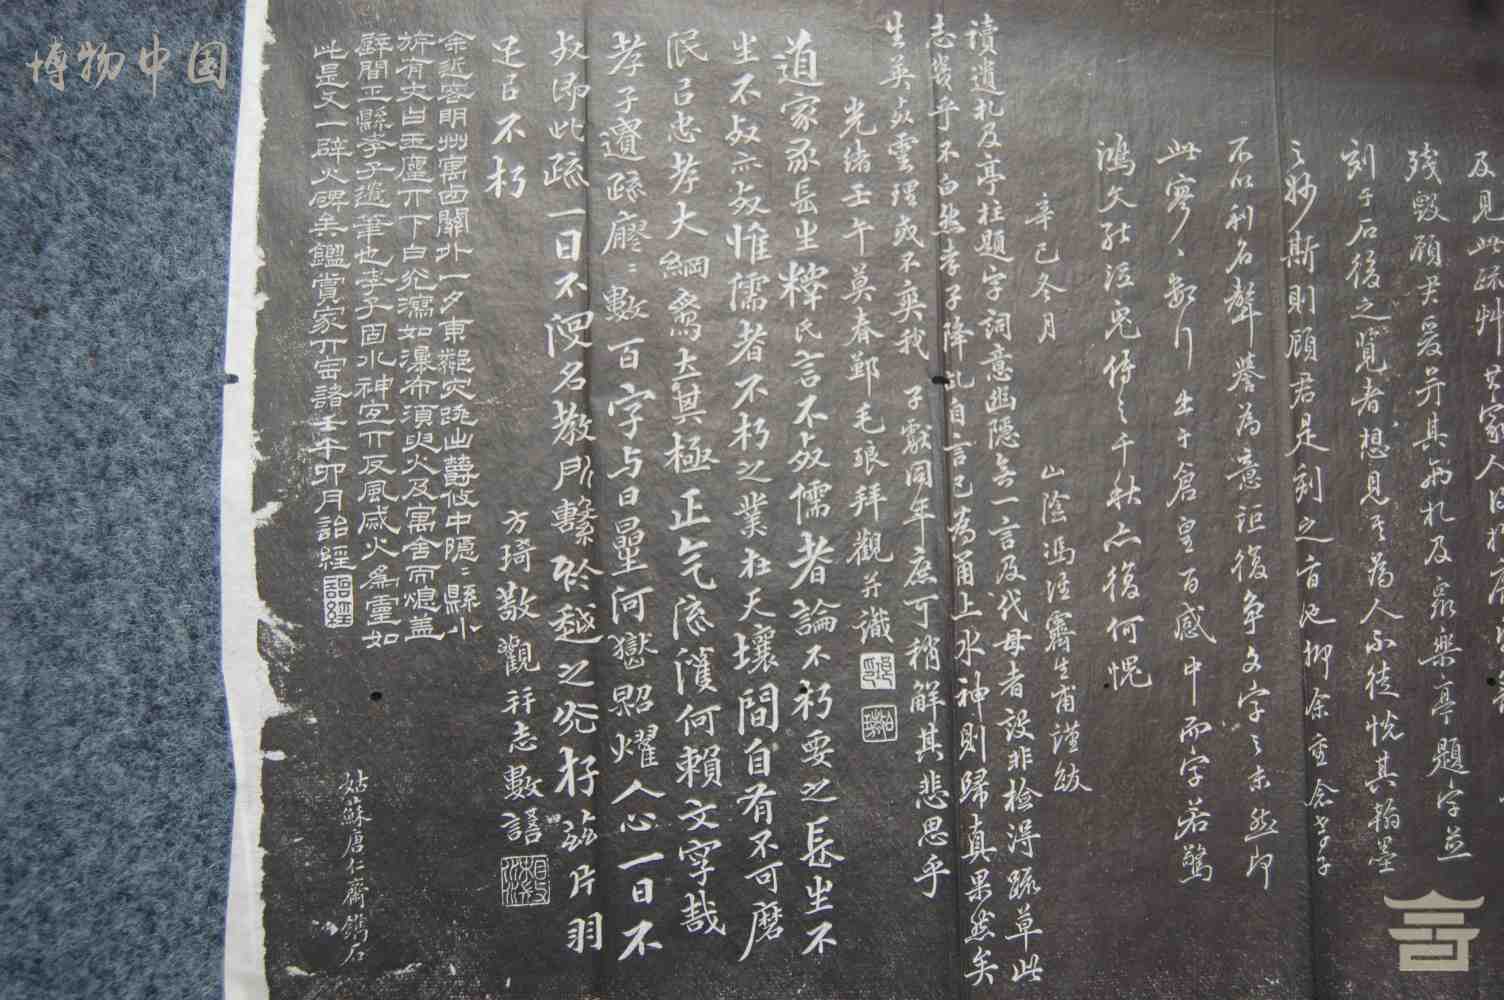 博物中国
及見此疏艸
殘毀願君爰并其兩札及眾樂亭題字並
刻于石後之覽者想見其為人不徒悅其翰墨
之妙斯則顧君是刻之旨也抑余重念孝子
不以利名聲譽為意詎復爭文字之末然即
此寥寥數行出于倉皇百感中而字若驚
鴻文能泣鬼傳之千秋亦復何愧
辛巳冬月 山陰馮 生甫謹跋
讀遺札及亭柱題字詞意幽隱無一言及代母者設非檢得疏草此
志幾乎不白然孝子降乩自言已為甬上水神則歸真果然矣
生英歿靈理或不爽我 子獻同年庶可稍解其悲思乎
光緒壬午莫春鄞毛琅拜觀并識
道家求長生釋氏言不死儒者論不朽要之長生不
生不死亦死惟儒者不朽之業在天壤間自有不可磨
泯吕忠孝大綱為其極正气流濩何賴文字哉
孝子賫疏廖廖數百字与日星河嶽照燿人心一日不
死即此疏一日不泯名教所繫於越之光存茲片羽
足吕不朽
方琦敬觀并志數語
余近客明州寓西關外一夕東鄰突跳出 中隱隱縣小
旂有史白 下白光瀉如瀑布須臾火及寓舍而熄蓋
壁間正縣孝子遺筆也孝子固水神宜 反風滅火為靈如
此是又一辟火碑矣鑑賞家 寶諸壬午卯月詒經
詒經
姑蘇唐仁齋鐫石